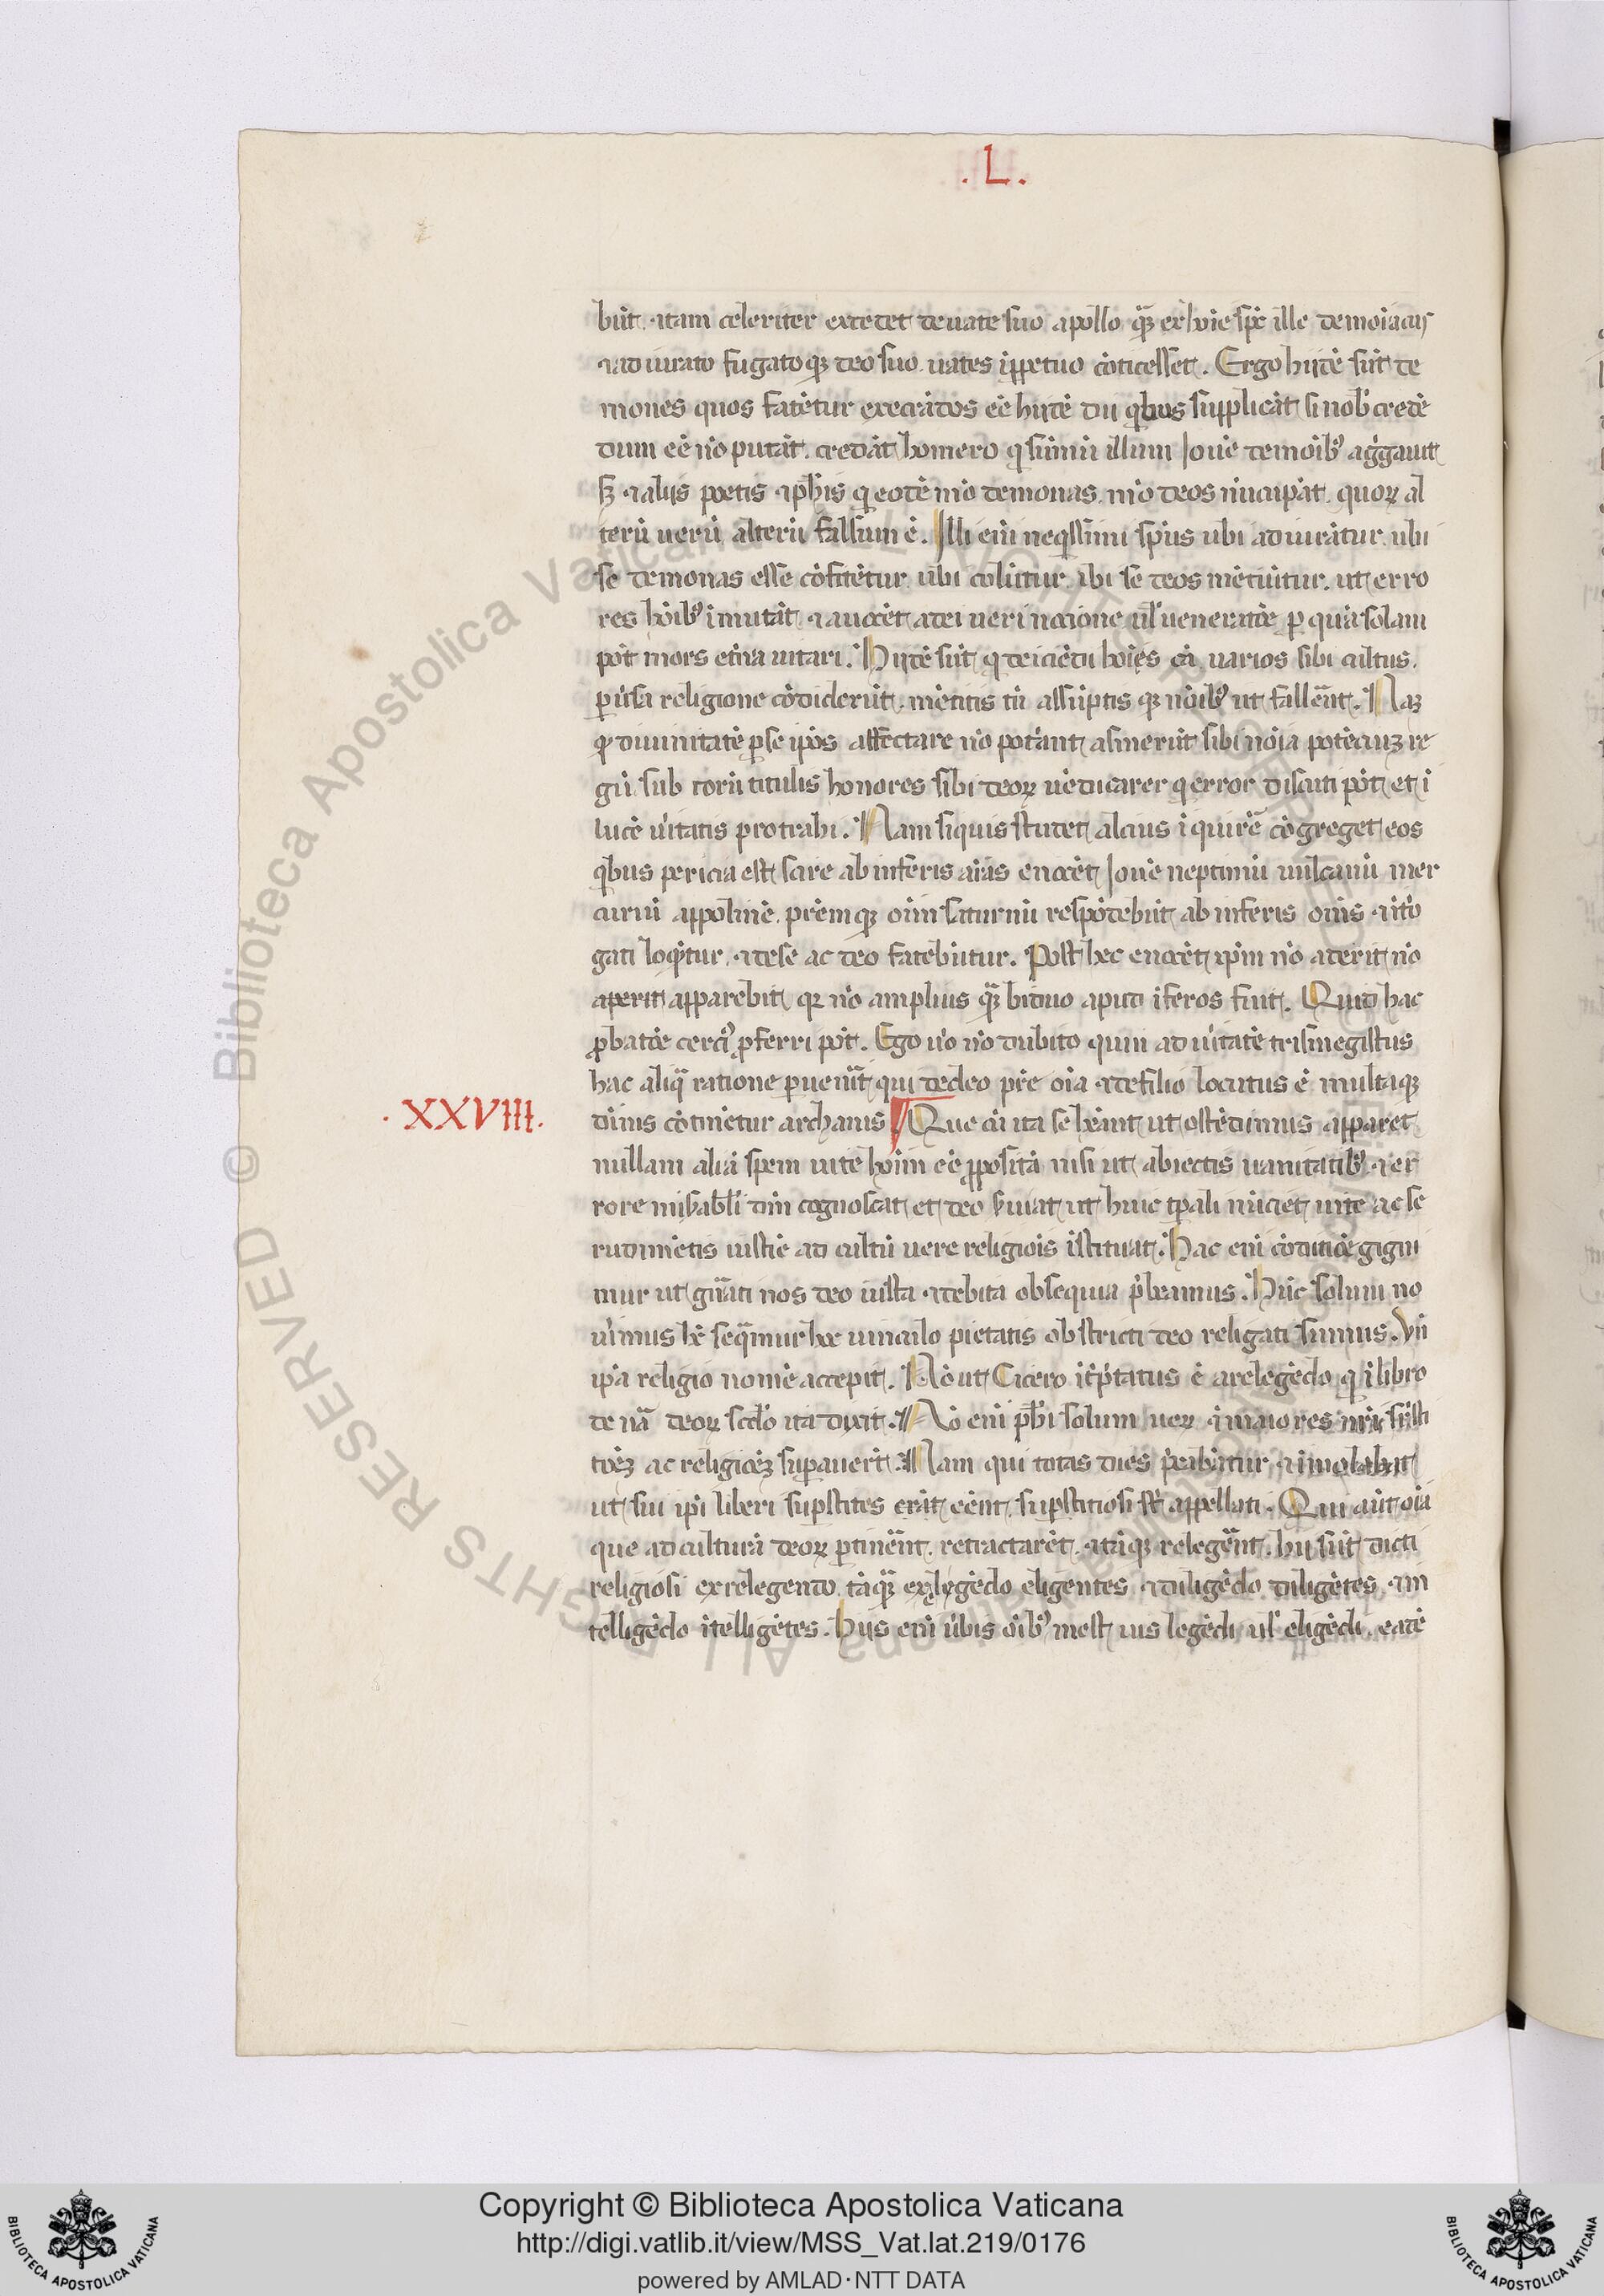 .L.
bũt. ⁊tam celeriter excedet de uate suo apollo q̃ꝫ ex hoĩe sp̃c ille demoĩacus
⁊ adiurato fugatoqꝫ deo suo. uates ĩ ꝑpetuo cõticesset. Ergo hijdẽ sũt de
mones quos fatẽtur execrãdos eẽ hijdẽ dii qbus supplicãt si nob̾ credẽ
dum eẽ nõ putãt. credãt homero q sũmũ illum Iouẽ demoĩbꝰ aggauit
sꝫ ⁊ alijs poetis ⁊ ph̃is q eodẽ mõ demonas. mõ deos nũcupãt. quoꝝ al
terũ uerũ alterũ falsum ẽ. Illi eni neq̃ssimi sp̃us ubi adiurãtur. ubi
se demonas esse cõfitẽtur. ubi colũtur. ibi se deos mẽtiũtur. ut erro
res hoĩbꝰ ĩmutãt. ⁊ auocẽt a dei ueri nocione ul̾ ueneratõe. ꝑ quã solam
põt mors et̃na uitari. Hijdẽ sũt q deiciẽdi hoĩes cã. uarios sibi cultus.
ꝑ ũsa religione cõdiderũt. mẽtitis tñ assũptis qꝫ noĩbꝰ ut fallẽnt. Naꝫ
q̃ diuinitatẽ ꝑ se ip̃os affectare nõ potãnt asinerũt sibi nõia potẽciuꝫ re
gũ. sub corũ titulis honores sibi deoꝝ uẽdicarẽ q error discuti põt et ĩ
lucẽ ũitatis protrahi. Nam siquis studet alcius ĩquirẽ cõgreget eos
qbus pericia est scire ab inferis aĩas euocẽt Iouẽ neptunũ uulcanũ mer
curiũ appolinẽ. pr̃emqꝫ oĩm saturnũ respõdebũt ab inferis oñs. ⁊ ĩto
gati loq̃ntur. ⁊ de se ac deo fatebũtur. Post hec euocẽt ip̃m nõ aderit nõ
aperit apparebit. qꝛ nõ amplius q̃ꝫ biduo apud ĩferos fuit. Quid hac
ꝓbatõe cercꝰ ꝓferri põt. Ego ũo nõ dubito quin ad ũitatẽ trismegistus
hac aliq̃ ratione ꝑuenĩt qui de deo pr̃e oĩa ⁊ de filio locutus ẽ multaqꝫ
.XXVIII.
diũis cõtinẽtur archanis ¶ Que cũ ita se hẽant ut ostẽdimus apparet
nullam aliã spem uite hoĩm eẽ ꝓpositã nisi ut abiectis uanitatibꝰ ⁊ er
rore mis̃abl̾i dm̃ cognoscat et deo s̃uiat ut huic tꝑali nũciet uite ac se
rudimẽtis iusticiẽ ad cultũ uere religiõis ĩstituat. Hac eni cõdicõe gigni
mur ut gñati nos deo iusta ⁊ debita obsequia p̃beamus. Hũc solum no
ũimus hũc seq̃mur hoc uinculo pietatis obstricti deo religati sumus. Vñ
ip̃a religio nomẽ accepit. Nõ ut Cicero ĩtp̃tatus ẽ a relegẽdo q ĩ libro
de nã deoꝝ scd̾o ita dixit. Nõ eni ph̃i solum ueꝝ ⁊ maiores nr̃i sup̃sti
tõeꝫ ac religiõeꝫ supauert̃. Nam qui totas dies p̃cabãtur ⁊ imolabãt
ut sui ip̃i liberi supstites erãt eẽnt supstitiosi st̃ appellati. Qui aũt oĩa
que ad culturã deoꝝ ꝑtinẽnt. retractarẽt. ⁊ tãqꝫ relegẽnt. hij sũt dicti
religiosi ex relegendo. tãq̃ꝫ ex legẽdo eligentes ⁊ diligẽdo diligẽtes. ⁊ in
telligẽdo ĩtelligẽtes. Hijs eni ũbis oĩbꝰ ĩnest uis legẽdi ul̾ eligẽdi. eadẽ
Copyright © Biblioteca Apostolica Vaticana
http://digi.vatlib.it/view/MSS_Vat.lat.219/0176
powered by AMLAD·NTT DATA
BIBLIOTECA APOSTOLICA VATICANA
BIBLIOTECA APOSTOLICA VATICANA